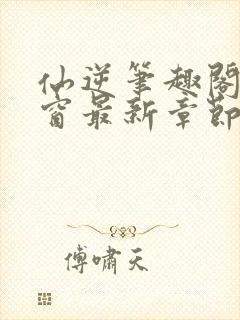 仙逆笔趣阁
窗最新章节
傅啸天